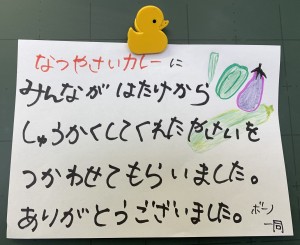 なつやさいカレーに
みんながはたけから
しゅうかくしてくれたやさいを
つかわせてもらいました。
ありがとうございました。
ボーノ
一同